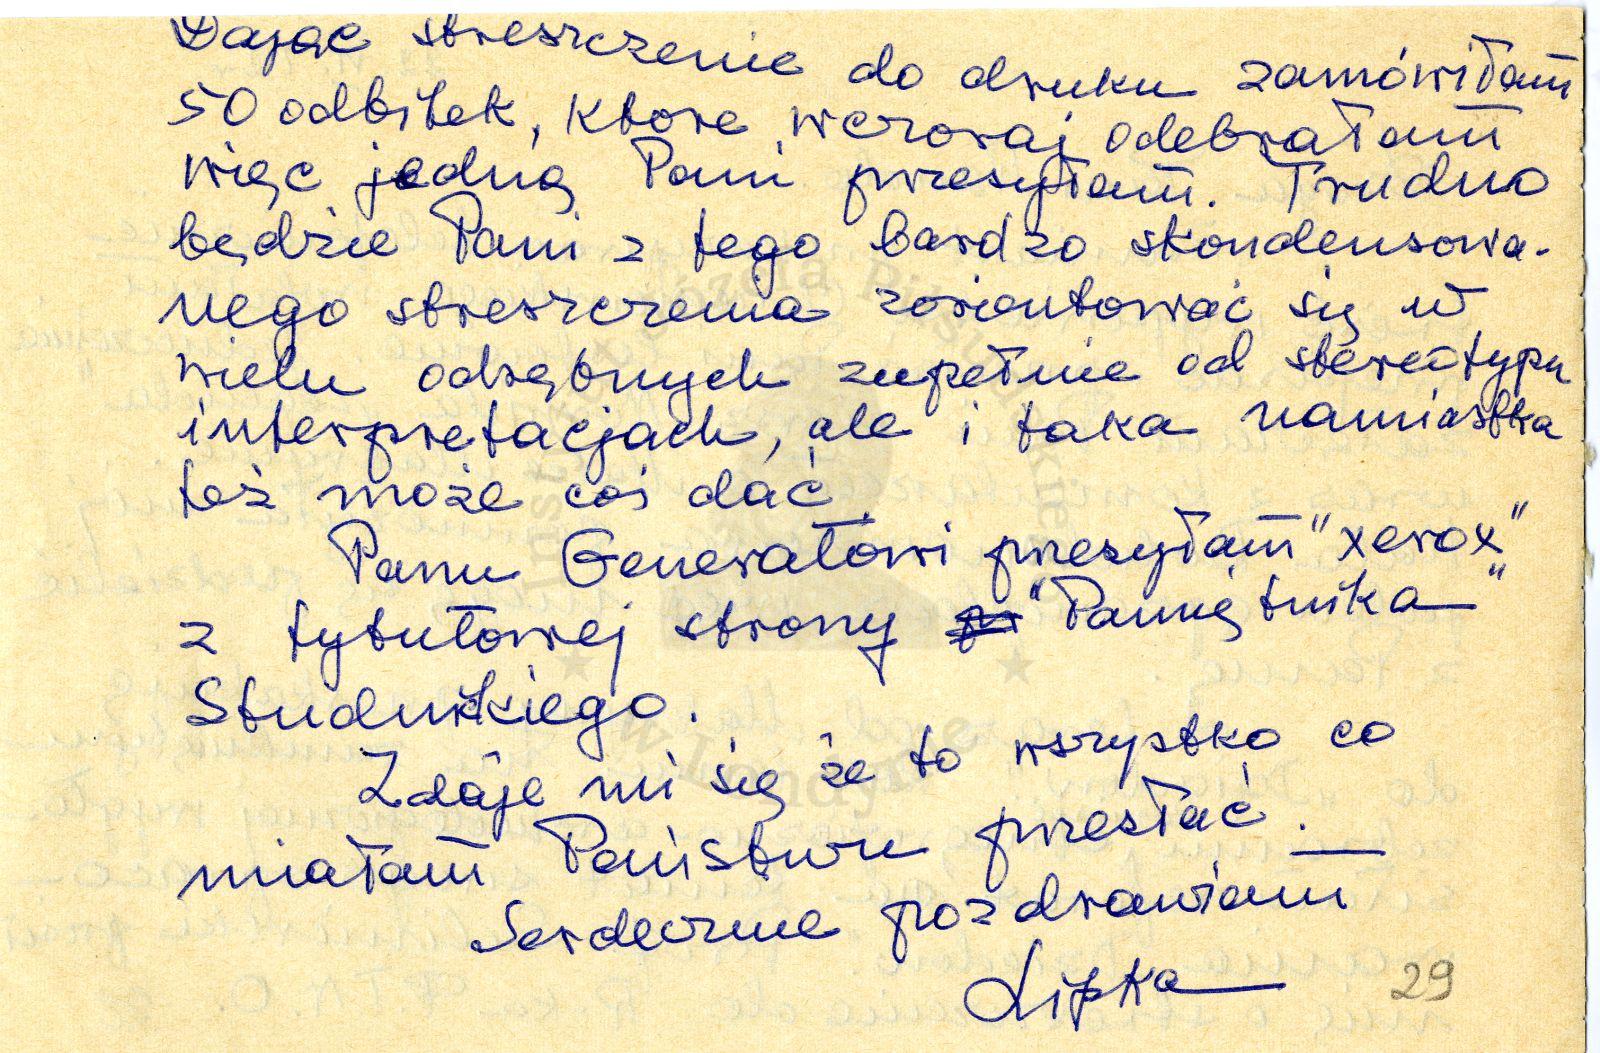 Dając streszczenie do druku zamówiłam
50 odbitek, które wczoraj odebrałam
więc jedną Pani przesyłam. Trudno
będzie Pani z tego bardzo skondensowa-
nego streszczenia zorientować się w
wielu odrębnych zupełnie od stereotypu
interpretacjach, ale i taka namiastka
też może coś dać.
Panu Generałowi przesyłam "xerox"
z tytułowej strony "Pamiętnika"
Studnickiego.
Zdaje mi się że to wszystko co
miałam Państwu przesłać. —
Serdecznie pozdrawiam
Lipka
29
Instytut Józefa Piłsudskiego
w Londynie